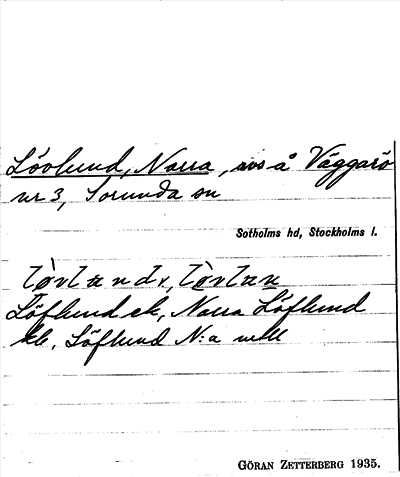 Lövlund, Norra, avs å Väggarö
nr 3, Sorunda sn
Sotholms hd, Stockholms l.
Löflund ek, Norra Löflund
kb. Löflund N:a mtl
GÖRAN ZETTERBERG 1935.